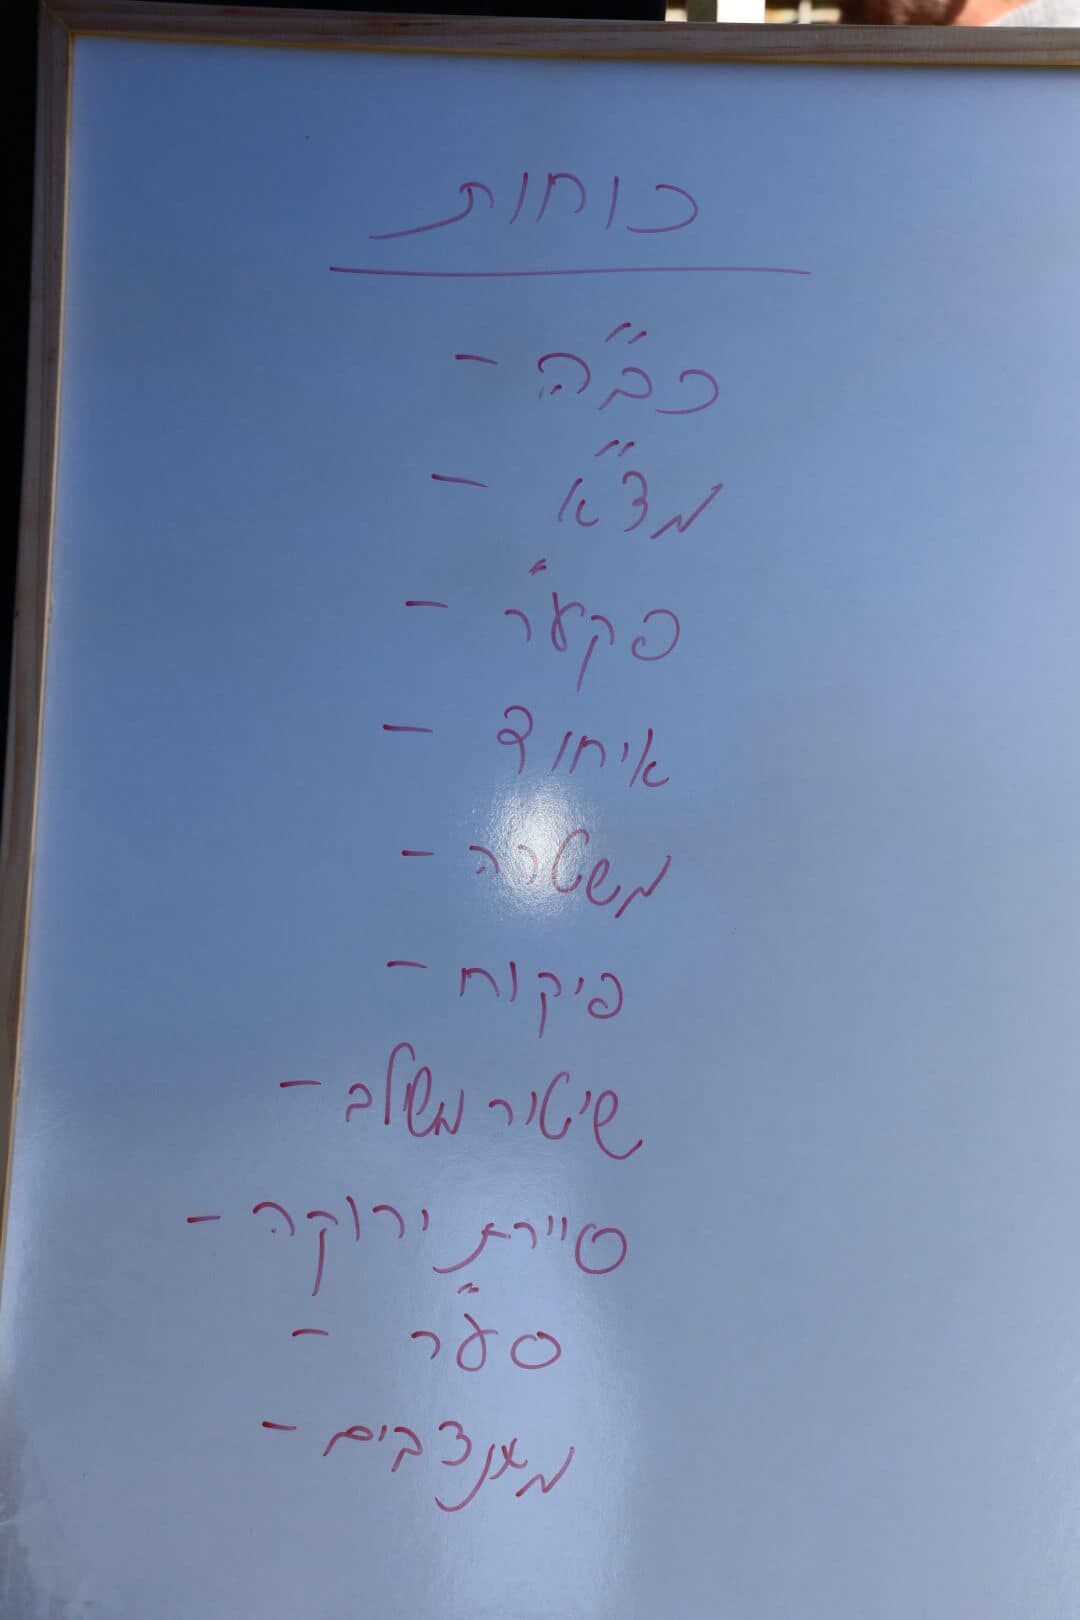 כוחות
כב"ה -
מד"א -
פקע"ר -
איחוד -
משטרה -
פיקוח -
שיטור משולב -
סיירת ירוקה -
סע"ר -
מתנדבים -